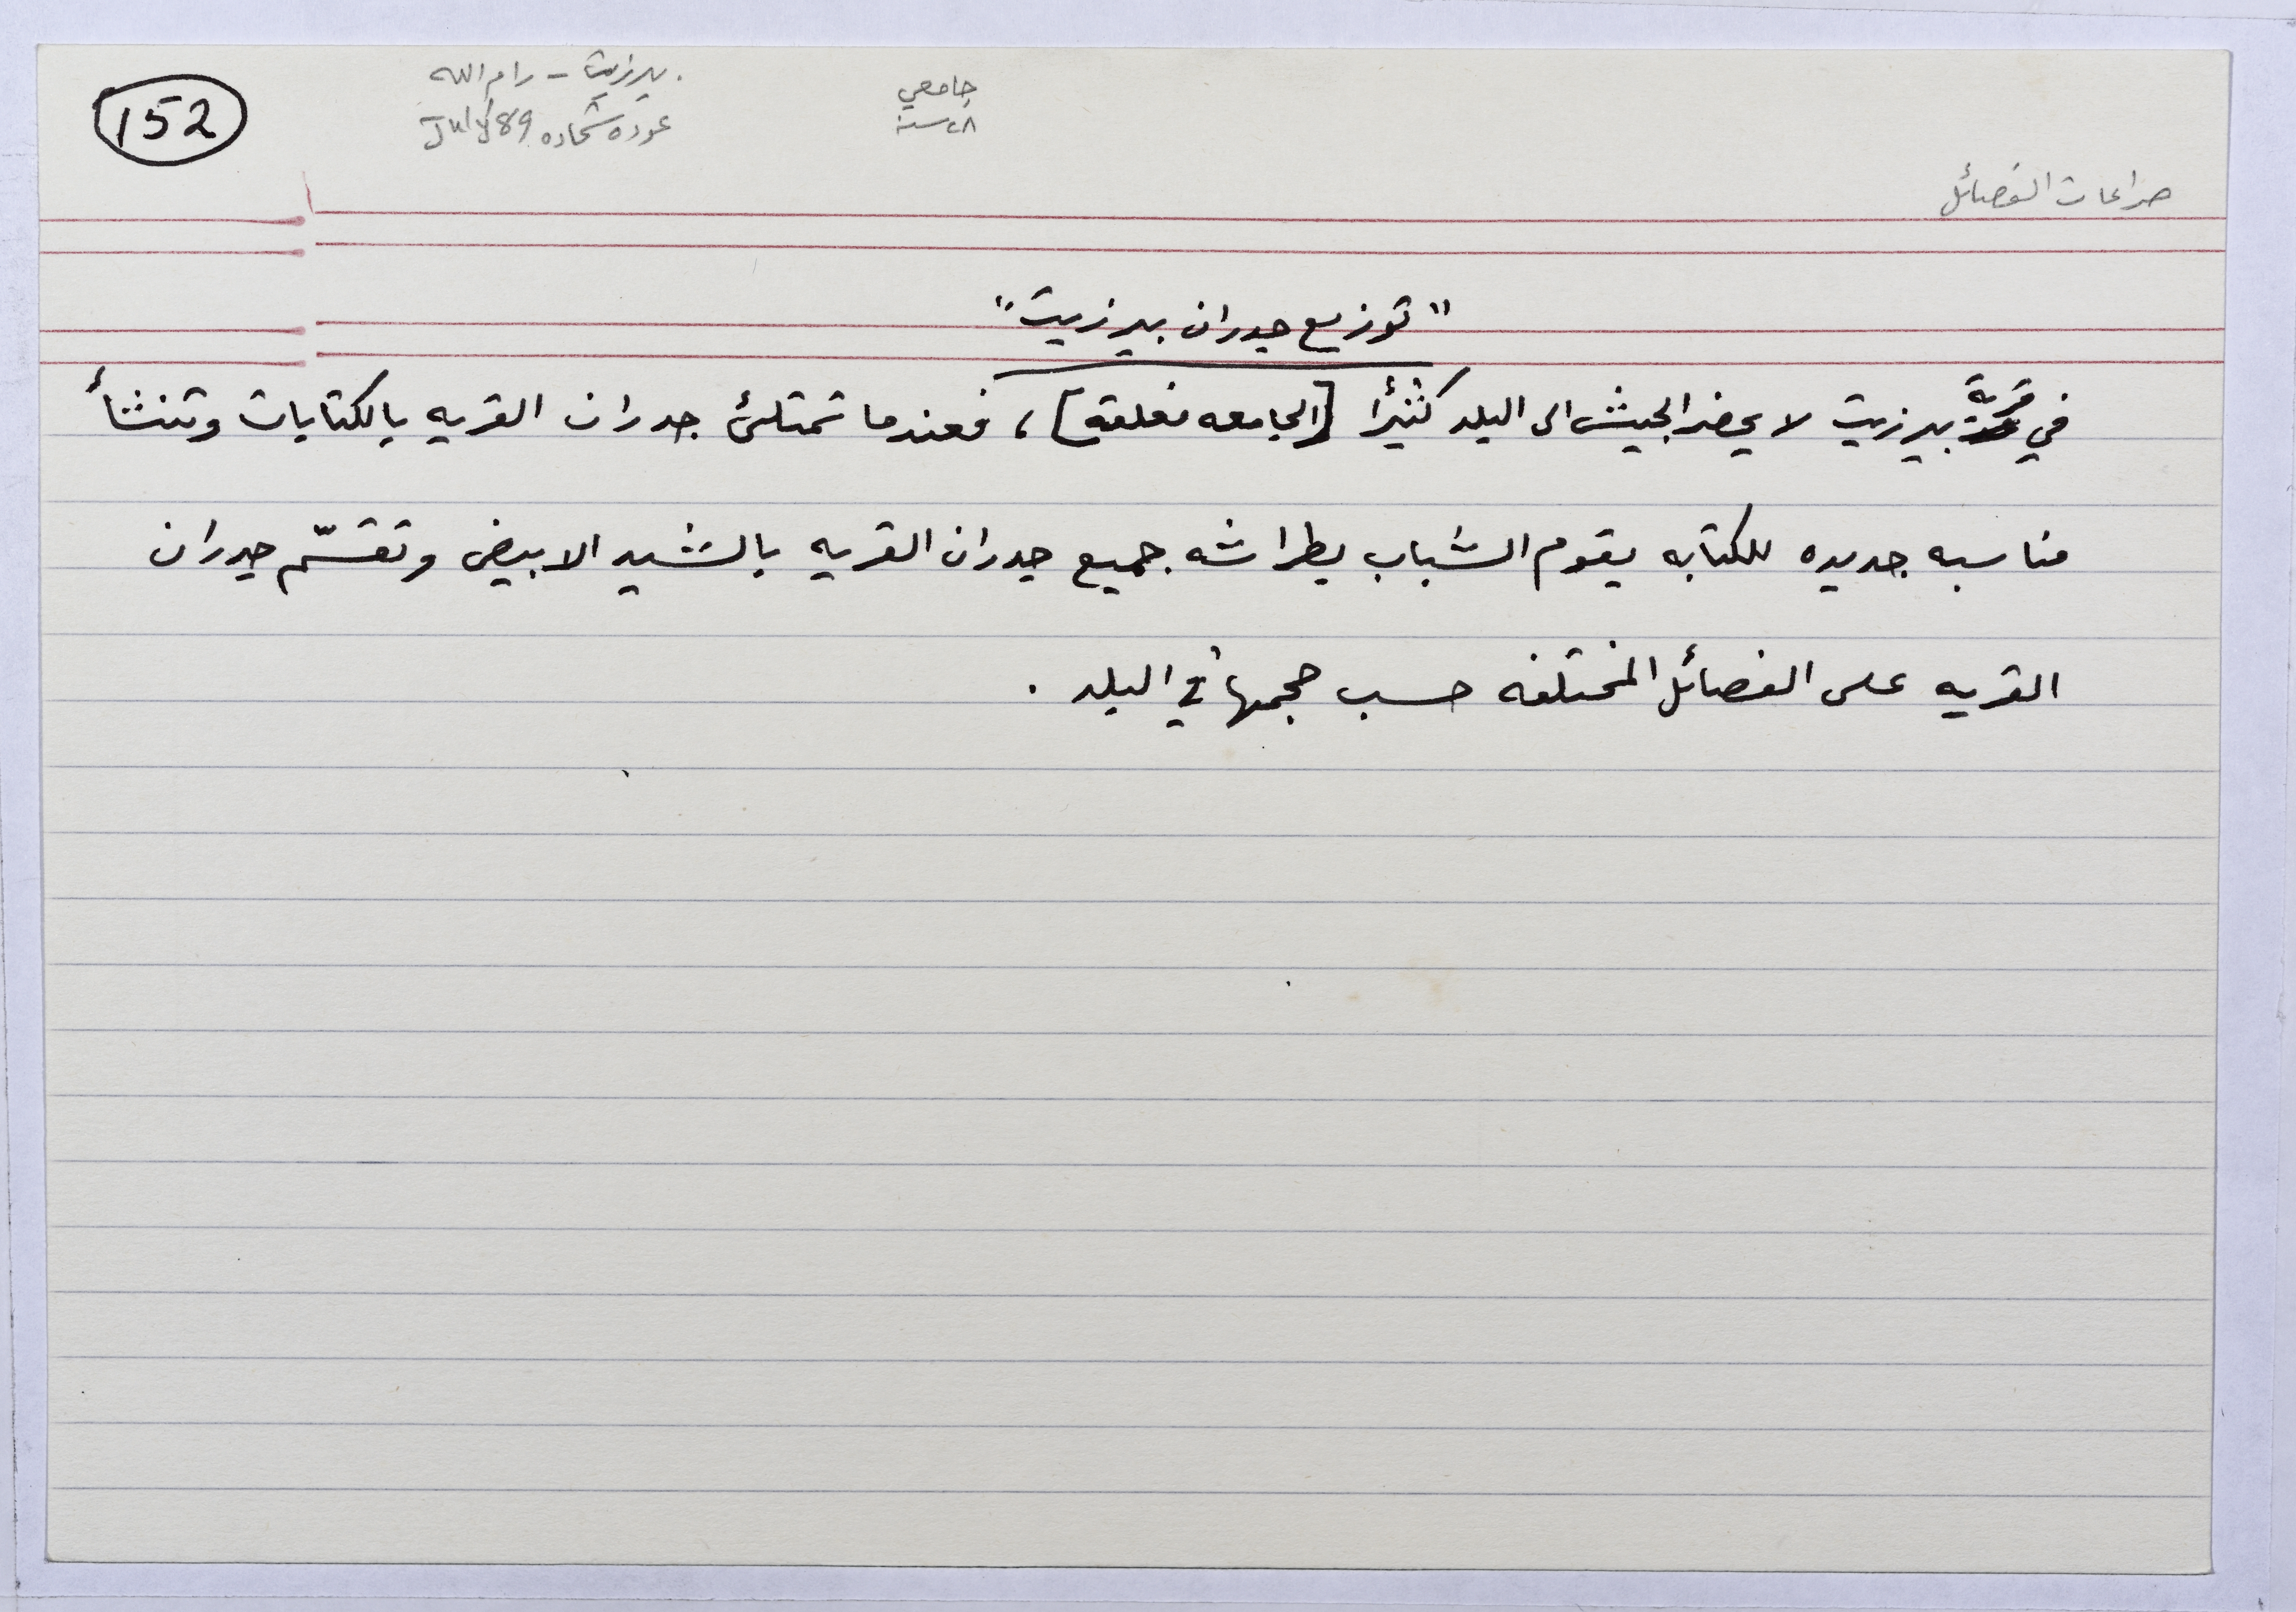 152
بيرزيت - رام الله
عوده شحاده July 89
جامعي
٢٨ سنة
صراعات الفصائل
"توزيع جدران بيرزيت"
في قرية بيرزيت لا يحضر الجيش الى البلد كثيرًا [الجامعه مغلقة]، فعندما تمتلئ جدران القريه بالكتابات وتنشأ
مناسبه جديده للكتابه يقوم الشباب بطراشه جميع جدران القريه بالشيد الابيض وتقسّم جدران
القريه على الفصائل المختلفه حسب حجمها في البلد .